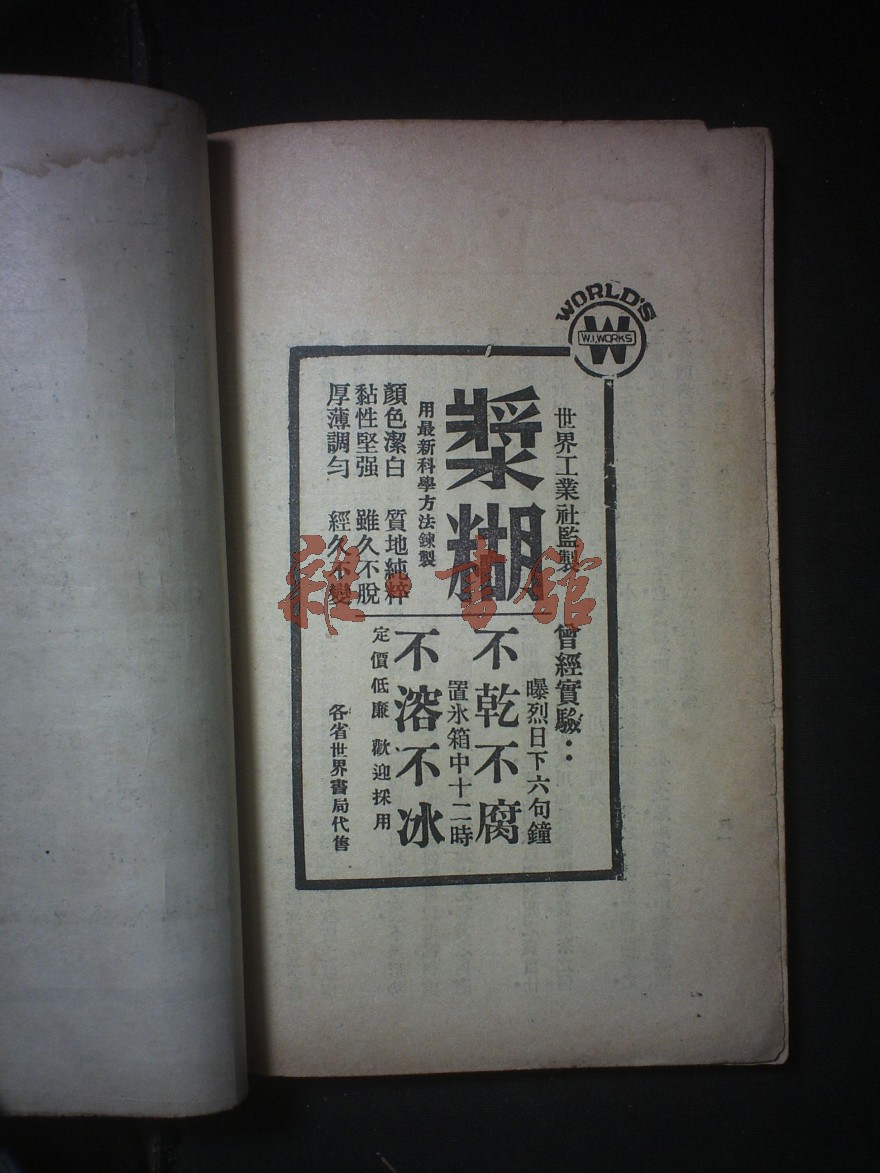 WORLD'S
W
W.I.WORKS
世界工業社監製
漿糊
用最新科學方法鍊製
顏色潔白 質地純粹
黏性堅强 雖久不脫
厚薄調勻 經久不變
曾經實驗：
曝烈日下六句鐘
不乾不腐
置氷箱中十二時
不溶不冰
定價低廉 歡迎採用
各省世界書局代售
雜·書館